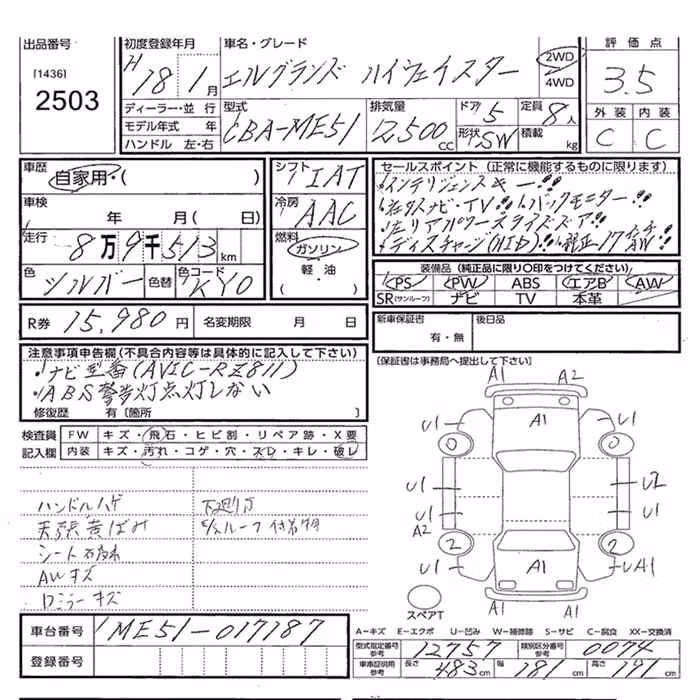 出品番号
[1436]
2503
初度登録年月
H18年1月
ディーラー・並 行
モデル年式 年
ハンドル 左・右
車名・グレード
エルグランド ハイウェイスター
2WD
4WD
型式
CBA-ME51
排気量
2,500cc
ドア 5
形状 SW
定員 8人
積載 kg
評価点
3.5
外装 内装
C C
車歴
自家用・( )
車検
年 月( 日)
走行
8万9千513km
色
シルバー
色替
色コード
KY0
シフト IAT
冷房
AAC
燃料
ガソリン
軽・油
( )
セールスポイント (正常に機能するものに限ります)
・インテリジェンスキー!!
・社外ナビ・TV!!・バックモニター!!
・左リアパワースライズドア!!
・ディスチャージ(HID)!!・純正17インチAW!!
装備品 (純正品に限り〇印をつけてください)
PS PW ABS エアB AW
SR(サンルーフ) ナビ TV 本革
R券 15,980円
名変期限 月 日
新車保証書
有・無
後日品
[保証書は事務局へ提出して下さい]
注意事項申告欄(不具合内容等は具体的に記入して下さい)
・ナビ型番(AVIC-RZ811)
・ABS警告灯点灯しない
修復歴 有[箇所 ]
検査員
記入欄
FW キズ・飛石・ヒビ割・リペア跡・X要
内装 キズ・汚れ・コゲ・穴・スレ・キレ・破レ
ハンドルハゲ
天張黄ばみ
シート
AWキズ
ミラーキズ
ルーフ
A1 A2
A1
U1 U1
U1 U2
U1 U1
A2
2 2
A1
U1 UA1
A1
スペアT
車台番号 ME51-017187
登録番号
A-キズ E-エクボ U-凹み W-補修跡 S-サビ C-腐食 XX-交換済
型式指定番号 参考 12757
類別区分番号 参考 0074
車庫証明用 参考 長さ 483cm 幅 181cm 高さ 191cm